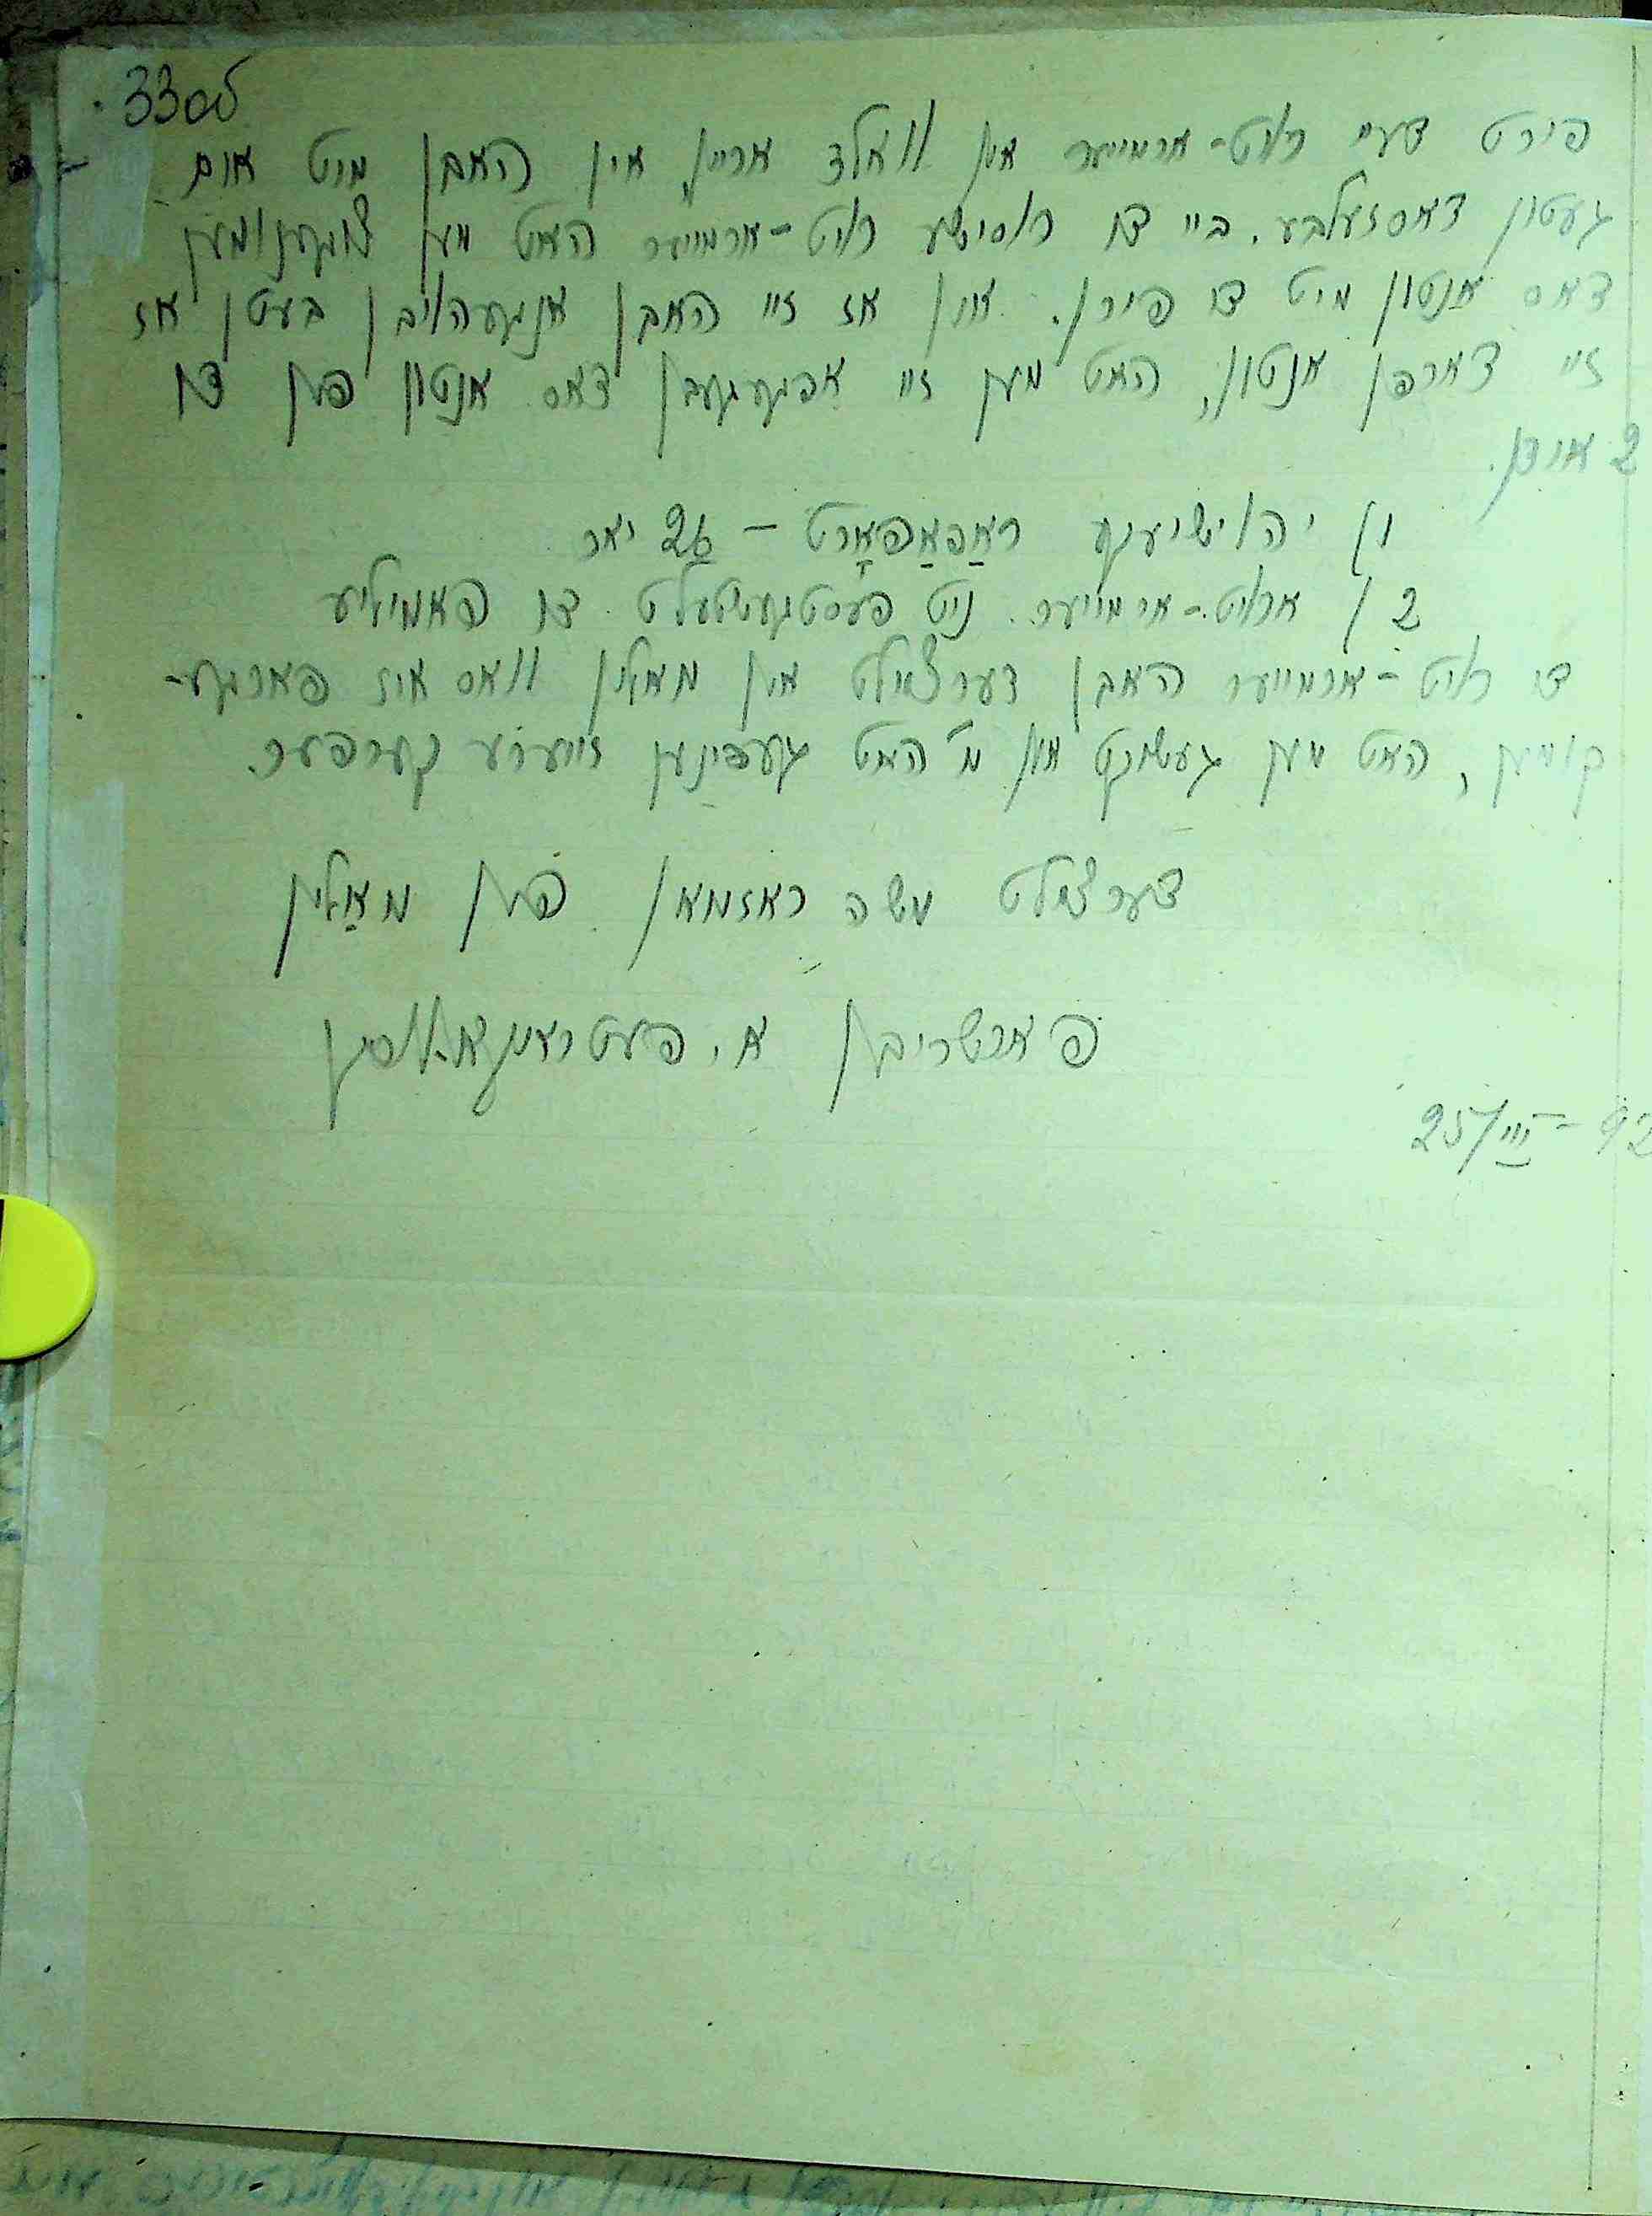 33об
פירט דעם רויט-ארמייער אין וואלד אריין, אין האבן מיט אים
געטון דאסזעלבע. ביי די רוסישע רויט-ארמייער האט מען צוגענומען
דאס אנטון מיט די פירן. און אז זיי האבן אנגעהויבן בעטן אז
זיי דארפן אנטון, האט מען זיי אפגעגעבן דאס אנטון פון די
2 אידן.
ראַפּאַפּאָרט – 26 יאר
2) א רויט-ארמייער. ניט פעסטגעשטעלט די פאמיליע
די רויט-ארמייער האבן דערציילט אין מאלין וואס איז פארגע-
קומען, האט מען געשיקט און מ'האט געפינען זייערע קערפער.
דערציילט משה ראזמאן פון מאַלין
פארשריבן א.
25/III – 42